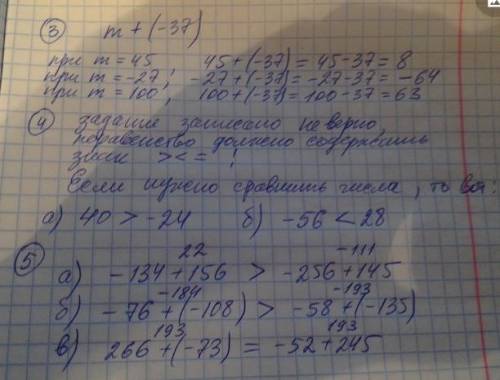 ③ m + (-37)
при m = 45 45 + (-37) = 45 - 37 = 8
при m = -27; -27 + (-37) = -27 - 37 = -64
при m = 100, 100 + (-37) = 100 - 37 = 63
④ задание записано неверно
неравенство должно содержать
знак > < = !
Если нужно сравнить числа, то вот:
а) 40 > -24 б) -56 < 28
⑤ 22 -111
а) -134 + 156 > -256 + 145
-184 -193
б) -76 + (-108) > -58 + (-135)
193 193
в) 266 + (-73) = -52 + 245